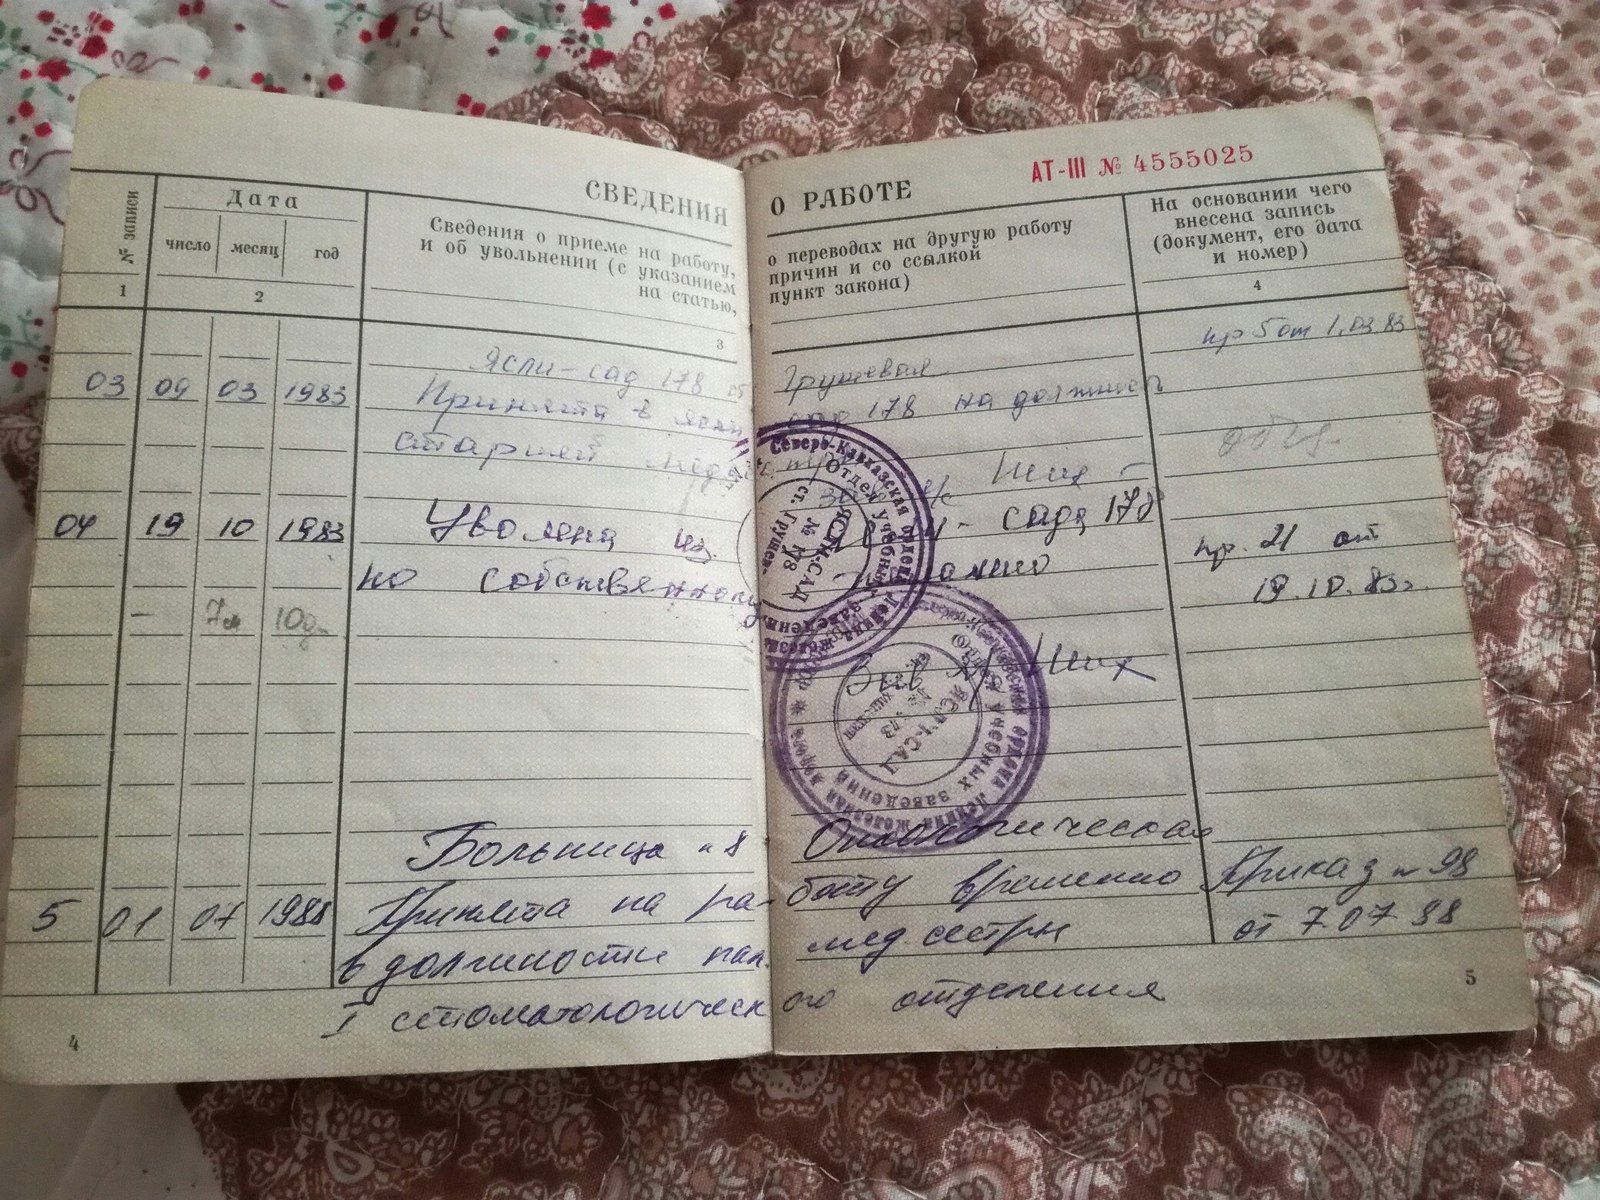 СВЕДЕНИЯ О РАБОТЕ
АТ-III № 4555025
№ записи
Дата
число месяц год
Сведения о приеме на работу, о переводах на другую работу
и об увольнении (с указанием причин и со ссылкой
на статью, пункт закона)
На основании чего
внесена запись
(документ, его дата
и номер)
1 2 3 4
Ясли-сад 178 ст Грушевая
пр 5 от 1.03.83
03 09 03 1983 Принята в ясли сад 178 на должность
старшей
зав я/с Ших
04 19 10 1983 Уволена из сада 178
пр. 21 от
по собственному
19.10.83г.
- 7м 10д-
Зав я/с Ших
Северо-Кавказская ордена Ленина железная дорога
Отдел учебных заведений
ЯСЛИ-САД
№ 178
ст. Грушев
ордена Ленина железная дорога
учебных заведений
ЯСЛИ-САД
Больница №8 Онкологическая
5 01 07 1988 Принята на работу временно Приказ № 98
в должности пал. мед сестры от 7.07.88
I стоматологического отделения
4
5